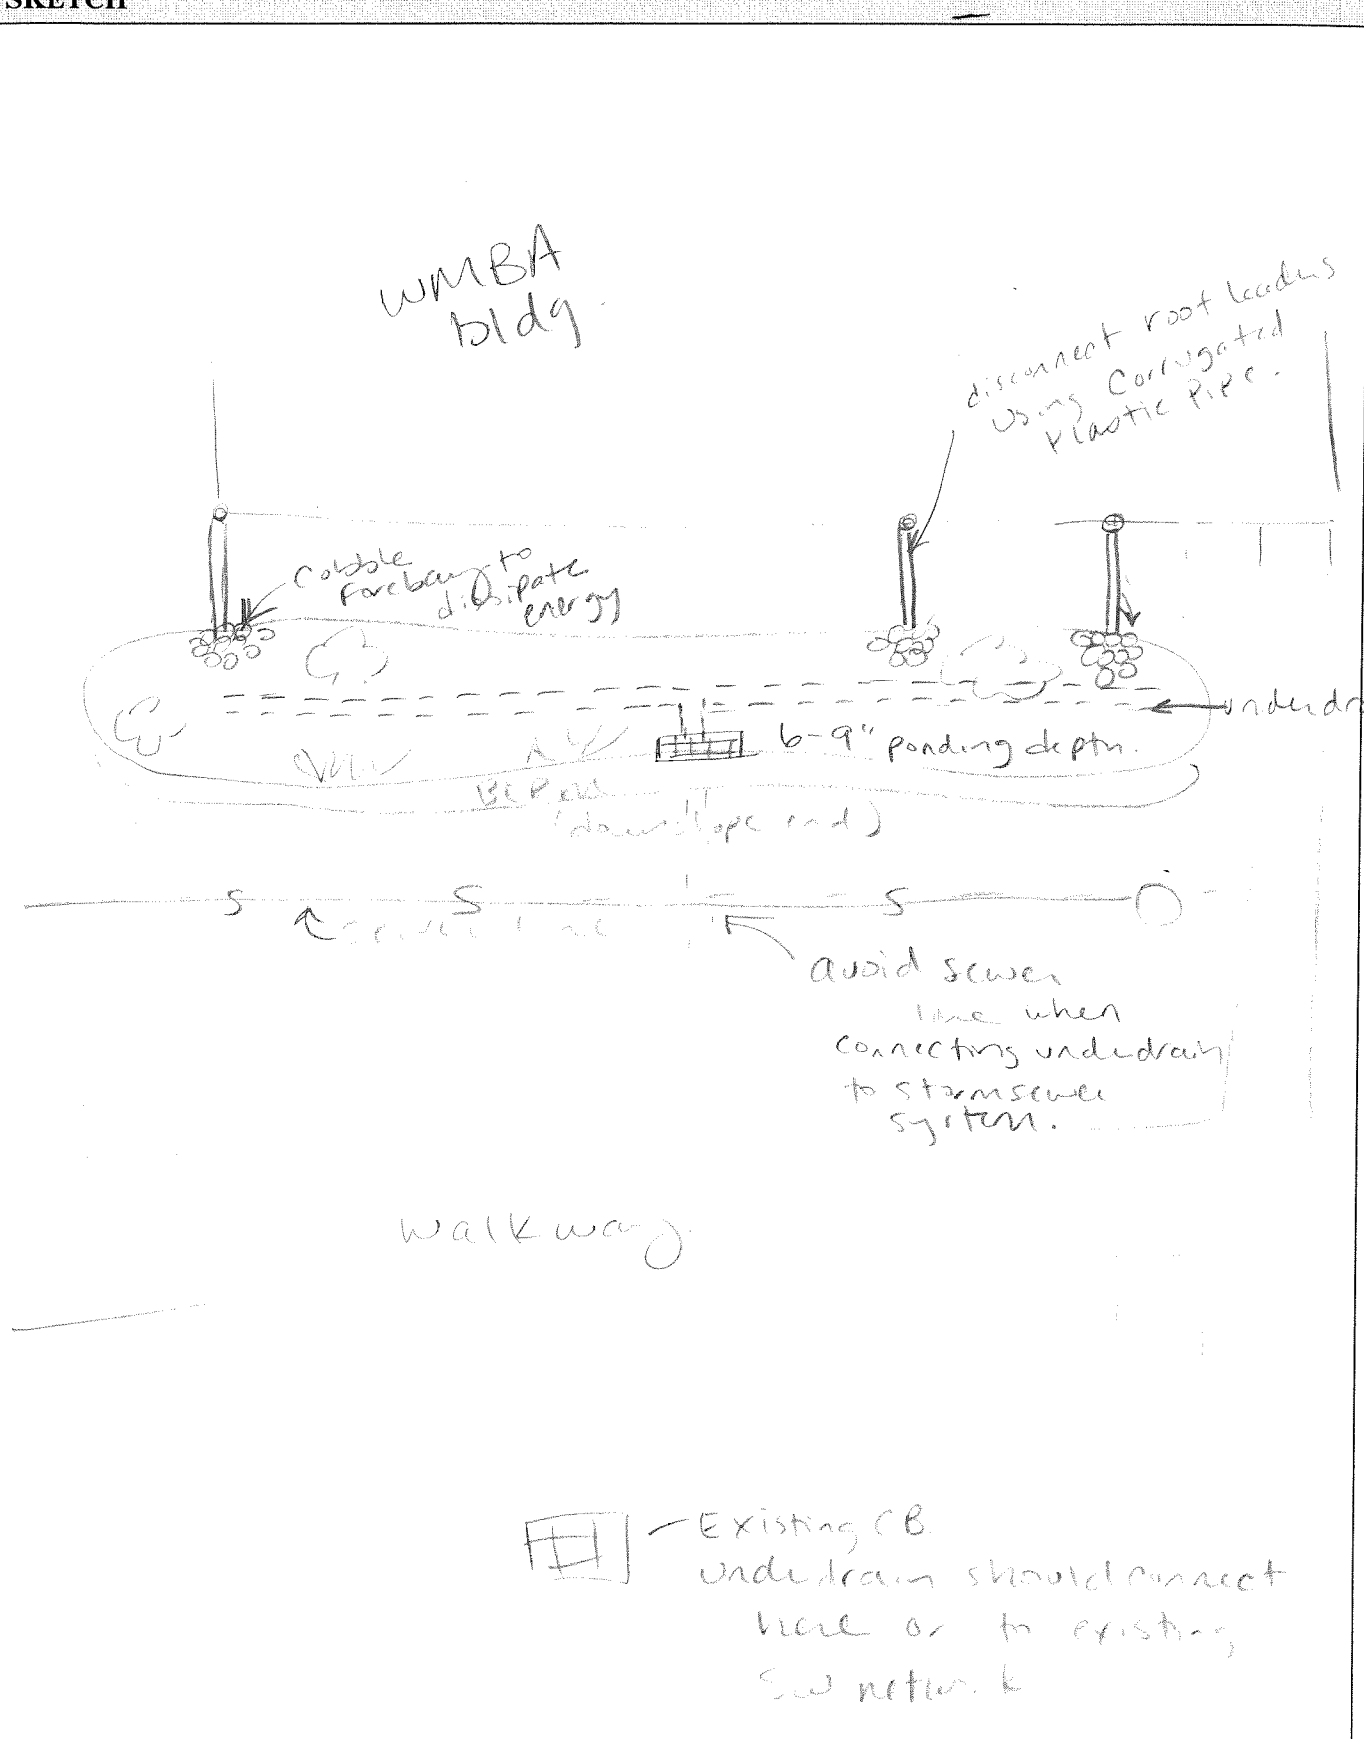 SKETCH
WMBA
bldg.
disconnect roof leaders
using Corrugated
Plastic Pipe.
Cobble
forebay to
dissipate
energy
underdr
6-9" ponding depth.
(downslope end)
S S S
sewer line
avoid sewer
line when
connecting underdrain
to stormsewer
system.
Walkway
Existing CB.
underdrain should connect
here or to existing
SW network